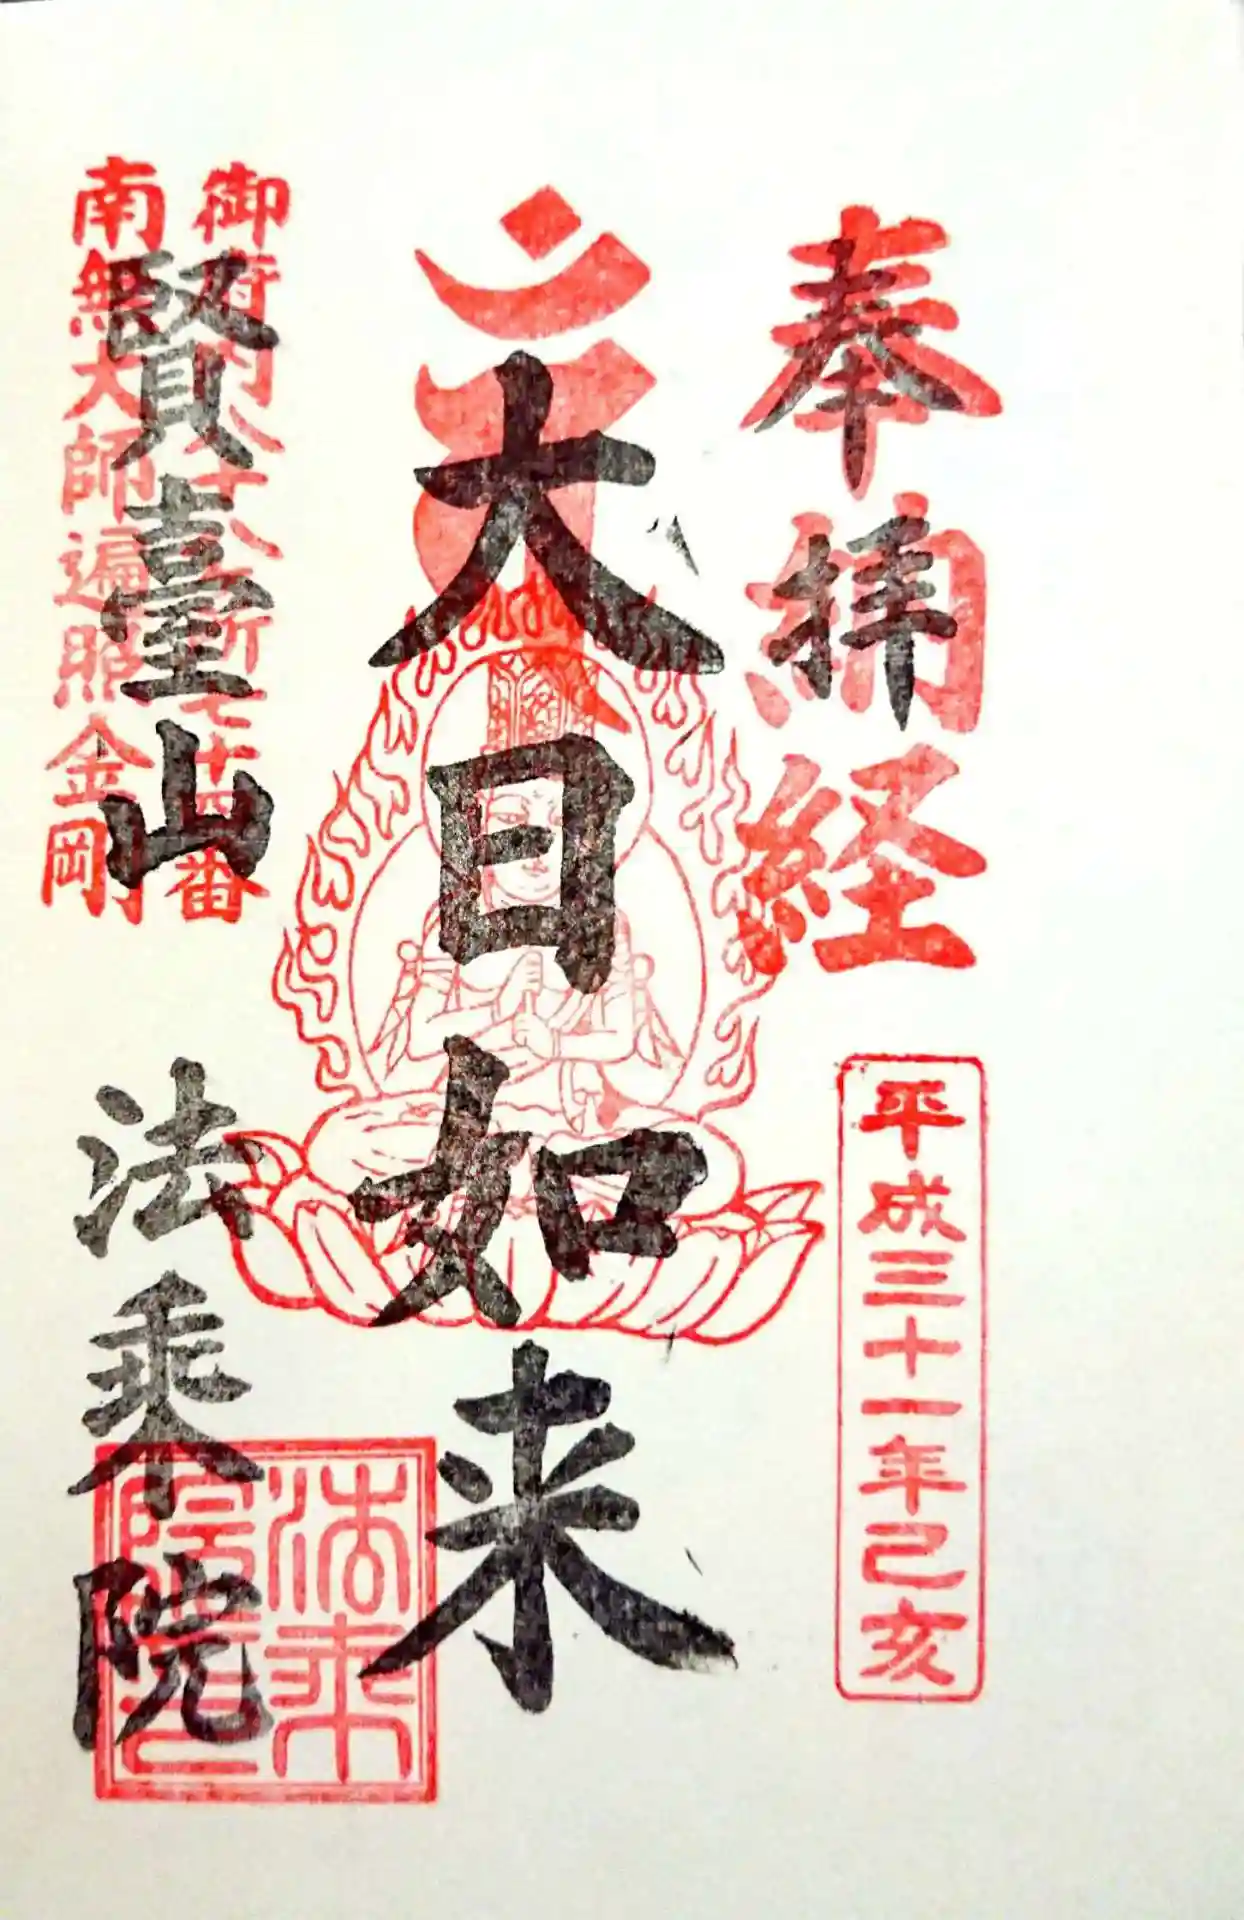 奉拝
奉納経
平成三十一年己亥
大日如来
御府内八十八ヶ所七十四番
南無大師遍照金剛
賢臺山 法乗院
法乗
院